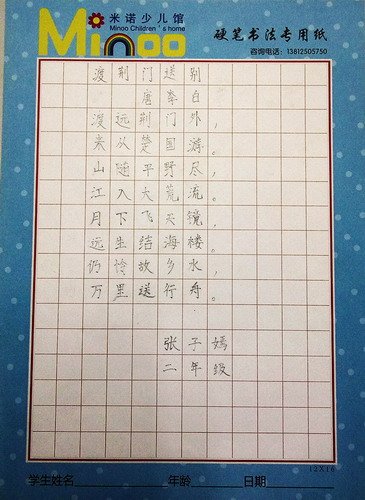 米诺少儿馆
Minoo Children's home
Minoo
硬笔书法专用纸
咨询电话：13812505750
渡荆门送别
唐 李白
渡远荆门外，
来从楚国游。
山随平野尽，
江入大荒流。
月下飞天镜，
远生结海楼。
仍怜故乡水，
万里送行舟。
张子嫣
二年级
12X16
学生姓名 年龄 日期